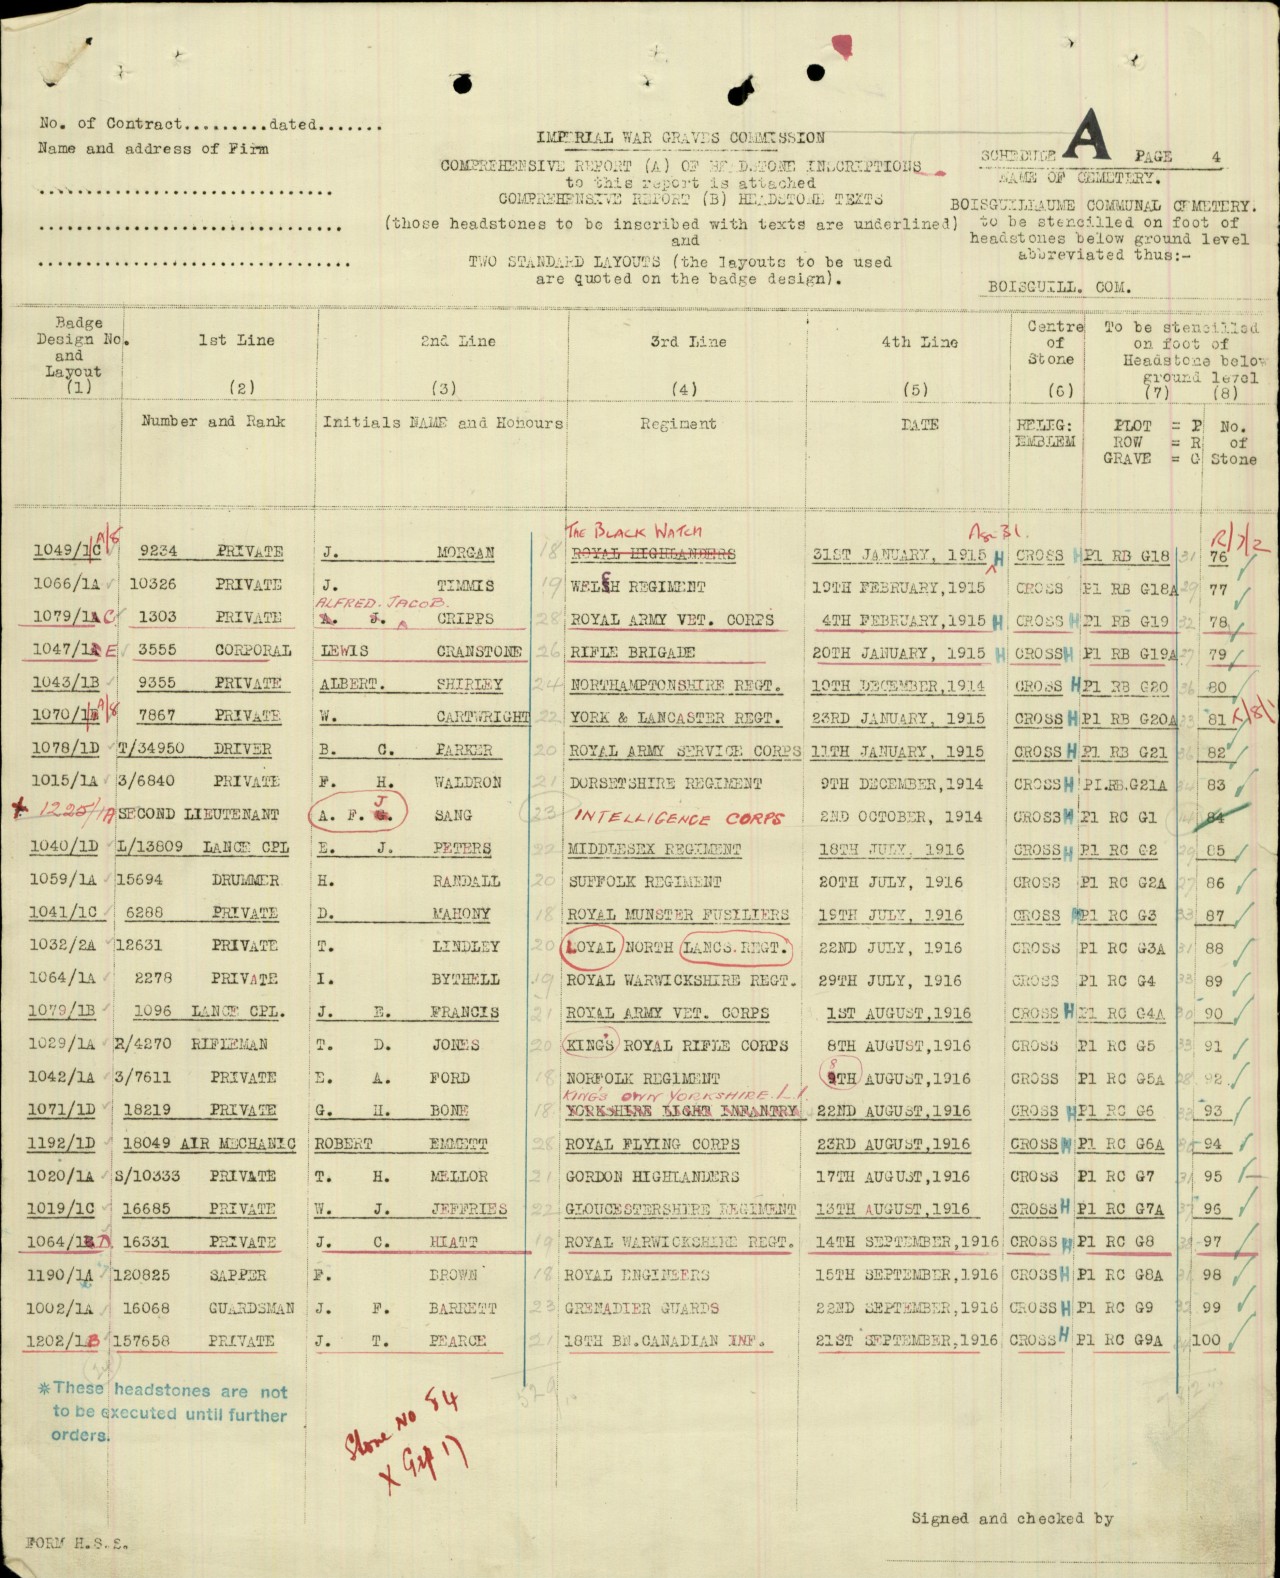 No. of Contract.........dated.......
Name and address of Firm
IMPERIAL WAR GRAVES COMMISSION
COMPREHENSIVE REPORT (A) OF HEADSTONE INSCRIPTIONS
to this report is attached
COMPREHENSIVE REPORT (B) HEADSTONE TEXTS
(those headstones to be inscribed with texts are underlined)
and
TWO STANDARD LAYOUTS (the layouts to be used
are quoted on the badge design).
SCHEDULE A PAGE 4
NAME OF CEMETERY.
BOISGUILLAUME COMMUNAL CEMETERY.
to be stencilled on foot of
headstones below ground level
abbreviated thus:-
BOISGUILL. COM.
Badge Design No. and Layout (1)
1st Line (2)
2nd Line (3)
3rd Line (4)
4th Line (5)
Centre of Stone (6)
To be stencilled on foot of Headstone below ground level (7) (8)
Number and Rank
Initials NAME and Honours
Regiment
DATE
RELIG: EMBLEM
PLOT = P
ROW = R
GRAVE = G
No. of Stone
THE BLACK WATCH Age 31. R/7/2
1049/1C A/8 9234 PRIVATE J. MORGAN 18 ROYAL HIGHLANDERS 31ST JANUARY, 1915 H CROSS H P1 RB G18 31 76
1066/1A 10326 PRIVATE J. TIMMIS 19 WELCH REGIMENT 19TH FEBRUARY,1915 CROSS P1 RB G18A 29 77
ALFRED. JACOB.
1079/1A C 1303 PRIVATE A. J. CRIPPS 28 ROYAL ARMY VET. CORPS 4TH FEBRUARY,1915 H CROSS H P1 RB G19 32 78
1047/1 E 3555 CORPORAL LEWIS CRANSTONE 26 RIFLE BRIGADE 20TH JANUARY, 1915 H CROSS H P1 RB G19A 27 79
1043/1B 9355 PRIVATE ALBERT. SHIRLEY 24 NORTHAMPTONSHIRE REGT. 19TH DECEMBER,1914 CROSS H P1 RB G20 36 80
1070/1 A/8 7867 PRIVATE W. CARTWRIGHT 22 YORK & LANCASTER REGT. 23RD JANUARY, 1915 CROSS H P1 RB G20A 81 R/8/1
1078/1D T/34950 DRIVER B. C. PARKER 20 ROYAL ARMY SERVICE CORPS 11TH JANUARY, 1915 CROSS H P1 RB G21 82
1015/1A 3/6840 PRIVATE F. H. WALDRON 21 DORSETSHIRE REGIMENT 9TH DECEMBER, 1914 CROSS H P1.RB.G21A 83
1225/1A SECOND LIEUTENANT A. F. J SANG 23 INTELLIGENCE CORPS 2ND OCTOBER, 1914 CROSS H P1 RC G1 84
1040/1D L/13809 LANCE CPL E. J. PETERS 22 MIDDLESEX REGIMENT 18TH JULY, 1916 CROSS H P1 RC G2 29 85
1059/1A 15694 DRUMMER H. RANDALL 20 SUFFOLK REGIMENT 20TH JULY, 1916 CROSS P1 RC G2A 27 86
1041/1C 6288 PRIVATE D. MAHONY 18 ROYAL MUNSTER FUSILIERS 19TH JULY, 1916 CROSS H P1 RC G3 33 87
1032/2A 12631 PRIVATE T. LINDLEY 20 LOYAL NORTH LANCS.REGT. 22ND JULY, 1916 CROSS P1 RC G3A 31 88
1064/1A 2278 PRIVATE I. BYTHELL 19 ROYAL WARWICKSHIRE REGT. 29TH JULY, 1916 CROSS P1 RC G4 33 89
1079/1B 1096 LANCE CPL. J. E. FRANCIS 21 ROYAL ARMY VET. CORPS 1ST AUGUST,1916 CROSS H P1 RC G4A 30 90
1029/1A R/4270 RIFLEMAN T. D. JONES 20 KING'S ROYAL RIFLE CORPS 8TH AUGUST,1916 CROSS P1 RC G5 33 91
1042/1A 3/7611 PRIVATE E. A. FORD 18 NORFOLK REGIMENT 8 9TH AUGUST,1916 CROSS P1 RC G5A 28 92
KING'S OWN YORKSHIRE. L.I.
1071/1D 18219 PRIVATE G. H. BONE 18 YORKSHIRE LIGHT INFANTRY 22ND AUGUST,1916 CROSS H P1 RC G6 33 93
1192/1D 18049 AIR MECHANIC ROBERT EMMETT 28 ROYAL FLYING CORPS 23RD AUGUST,1916 CROSS H P1 RC G6A 94
1020/1A S/10333 PRIVATE T. H. MELLOR 21 GORDON HIGHLANDERS 17TH AUGUST,1916 CROSS P1 RC G7 31 95
1019/1C 16685 PRIVATE W. J. JEFFRIES 22 GLOUCESTERSHIRE REGIMENT 13TH AUGUST,1916 CROSS H P1 RC G7A 37 96
1064/1 D 16331 PRIVATE J. C. HIATT 19 ROYAL WARWICKSHIRE REGT. 14TH SEPTEMBER,1916 CROSS H P1 RC G8 97
1190/1A 120825 SAPPER F. BROWN 18 ROYAL ENGINEERS 15TH SEPTEMBER,1916 CROSS H P1 RC G8A 98
1002/1A 16068 GUARDSMAN J. F. BARRETT 23 GRENADIER GUARDS 22ND SEPTEMBER,1916 CROSS H P1 RC G9 32 99
1202/1B 157658 PRIVATE J. T. PEARCE 21 18TH BN.CANADIAN INF. 21ST SEPTEMBER,1916 CROSS H P1 RC G9A 100
529
*These headstones are not
to be executed until further
orders.
Stone No 84
X
Signed and checked by
FORM H.S.2.